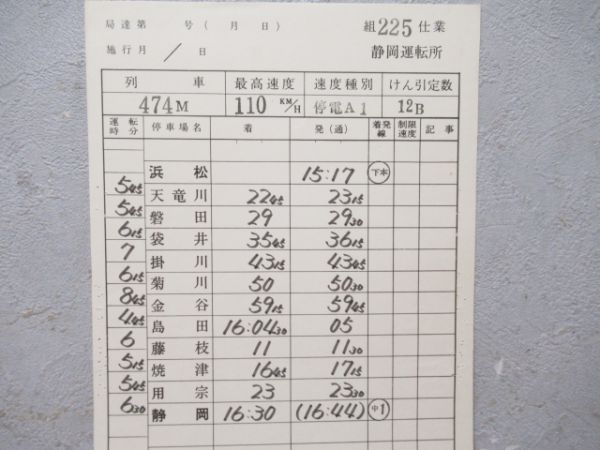 局達第 号(月 日) 組225仕業
施行月/日 静岡運転所
列車 最高速度 速度種別 けん引定数
474M 110KM/H 停電A1 12B
運転時分 停車場名 着 発(通) 着発線 制限速度 記事
浜松 15:17 下本
5 45
天竜川 22 45 23 15
5 45
磐田 29 29 30
6 15
袋井 35 45 36 15
7
掛川 43 15 43 45
6 15
菊川 50 50 30
8 45
金谷 59 15 59 45
4 45
島田 16:04 30 05
6
藤枝 11 11 30
5 15
焼津 16 45 17 15
5 45
用宗 23 23 30
6 30
静岡 16:30 (16:44) 中1